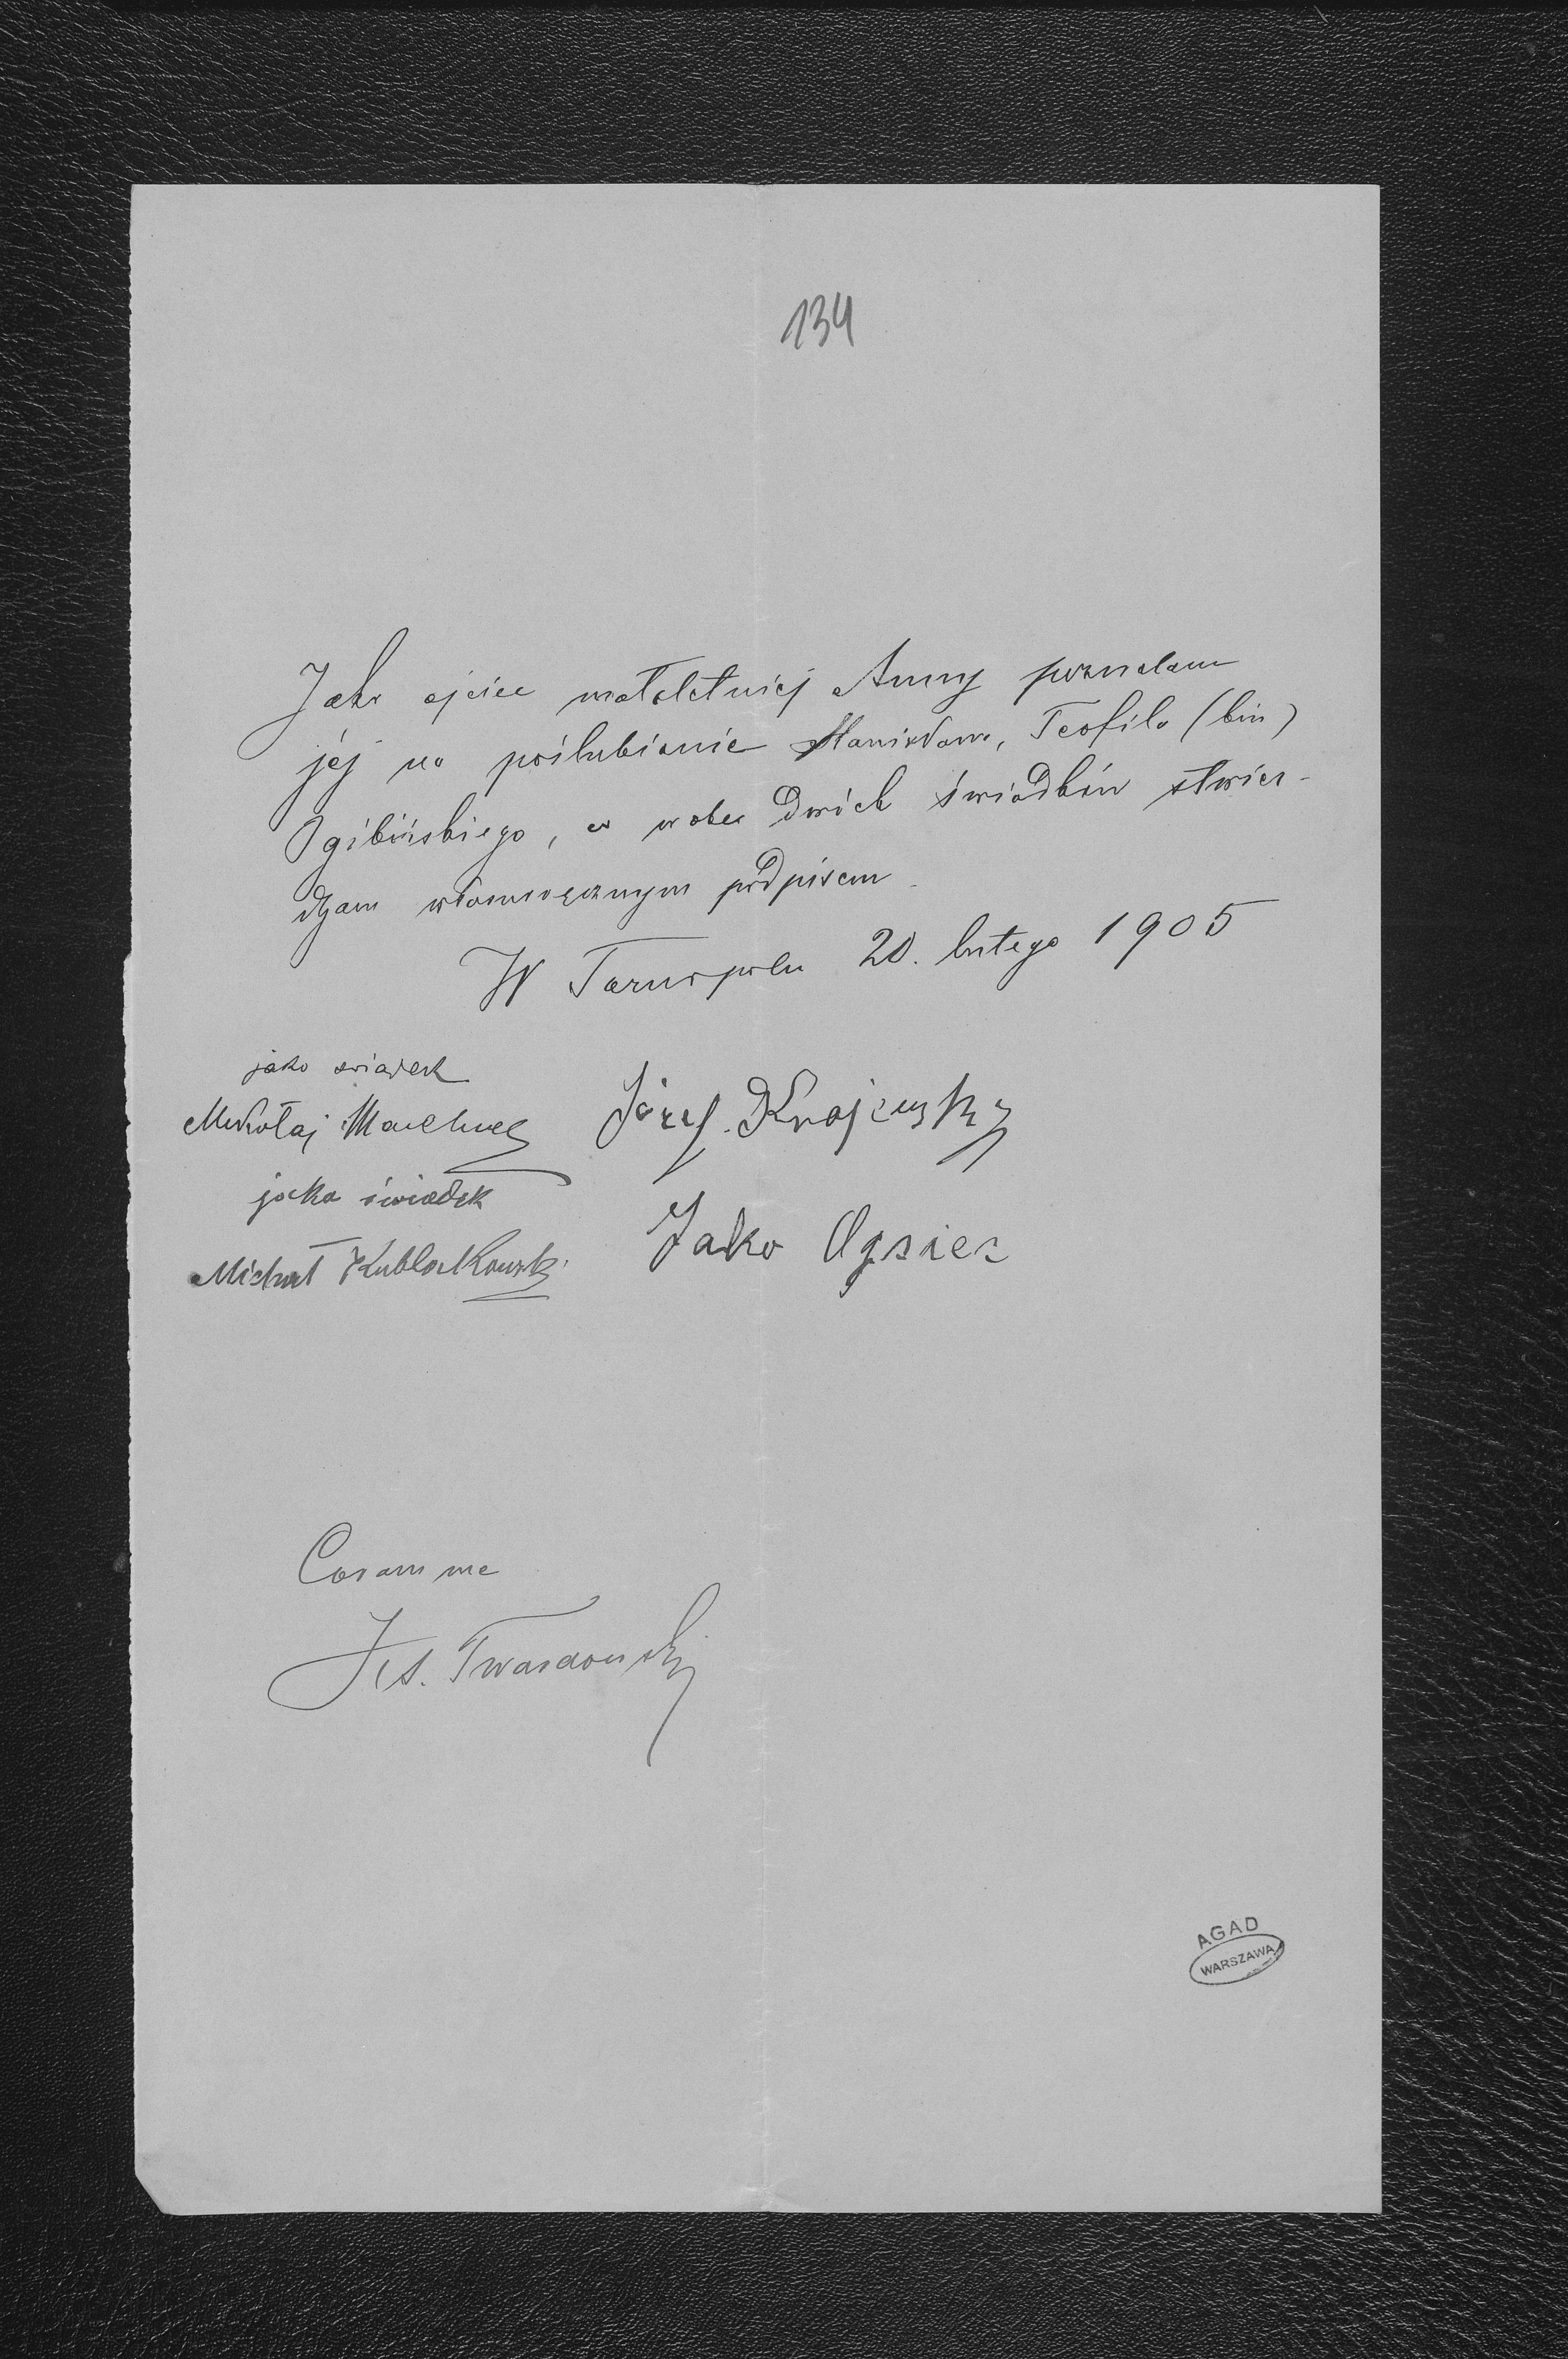 134
Jako ojciec małoletniej Anny pozwalam
jej na poślubienie Stanisława, Teofila (bin)
Ogibińskiego, co wobec dwóch świadków stwier-
dzam własnoręcznym podpisem
W Tarnopolu 20. lutego 1905
jako świadek
Mikołaj
Józef Krajewsky
jako świadek
Michał
Jako Ojsiec
Coram me
X. S. Twardowski
AGAD
WARSZAWA